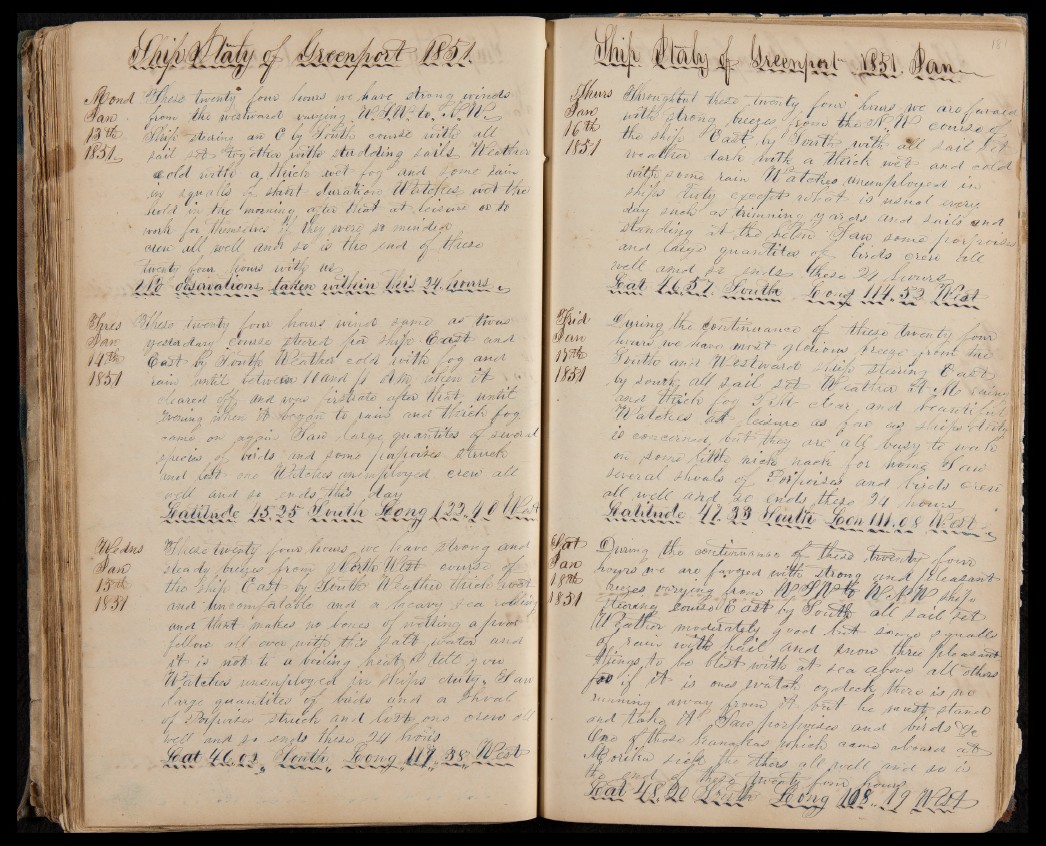 Ship Italy of Greenport 1851.
Mond
Jan
13th
1851
These twenty four hours we have strong winds
from the westward varying W.S.W. to N.W.
Ship stering an E by South course with all
sail set together with studding sails Weather
cold with a thick wet fog and some rain
in squalls of short duration Watches wet the
hold in the morning after that at leisure or to
work for themselves if they were so minded
crew all well and so is the end of these
twenty four hours with us
No observations taken within this 24 hours
Tues
Jan
14th
1851
These twenty four hours wind same as twas
yesterday Course steered for ship East and
East by South Weather cold with fog and
rain until between 10 and 11 A.M. when it
cleared off and was first rate after that until
evening when it began to rain and thick fog
came on again Saw large quantites of several
species of birds and some porpoises struck
and lost one Watches unemployed crew all
well and so ends this day
Latitude 45.25 South Long 122.40 West
Wedns
Jan
15th
1851
These twenty four hours we have strong and
steady breezes from North West course of
the ship East by South Weather thick wet
and uncomfortable and a heavy sea rolling
and that makes no bones of wetting a poor
fellow all over with this salt water and
it is not to a boiling heat I tell you
Watches unemployed in ships duty Saw
large quantites of birds and a shoal
of Porpoises struck and lost one crew all
well and so ends these 24 hours
Lat 46.02 South Long 117.38 West
Ship Italy of Greenport 1851. Jan
Thurs
Jan
16th
1851
Throughout these twenty four hours we are favored
with strong breezes from the N W course of
the ship East by South with all sail set
weather dark with a thick wet and cold
with some rain Watches unemployed in
ships duty except what is usual every
day such as trimming yards and sails and
standing at the helm Saw some porpoises
and large quantites of birds crew all
well and so ends these 24 hours
Lat 46.57 South Long 114.52 West
Frid
Jan
17th
1851
During the continuance of these twenty four
hours we have most glorious breeze from the
South and Westward ship stering East
by south, all sail set Weather A.M. rainy
and thick fog P.M. clear and beautiful
Watches at leisure as far as ships duty
is concerned but they are all busy to work
on some little nick nack for home Saw
several shoals of Porpoises and birds crew
all well and so ends these 24 hours
Latitude 47.23 South Lon 111.08 West
Sat
Jan
18th
1851
During the continuance of these twenty four
hours we are favored with strong and pleasant
breezes varying from W.S.W. to W.N.W. ship
steering Course East by South all sail set
Weather moderately good but some squalls
of rain with hail and snow three pleasant
things to be blest with at sea above all others
for if it is ones watch on deck there is no
running away from it but he must stand
and take it Saw porpoises and birds &c
One of those which came aboard at
sick the others all well and so is
the end of these twenty four hours
Lat 48.20 South Long 108.19 West